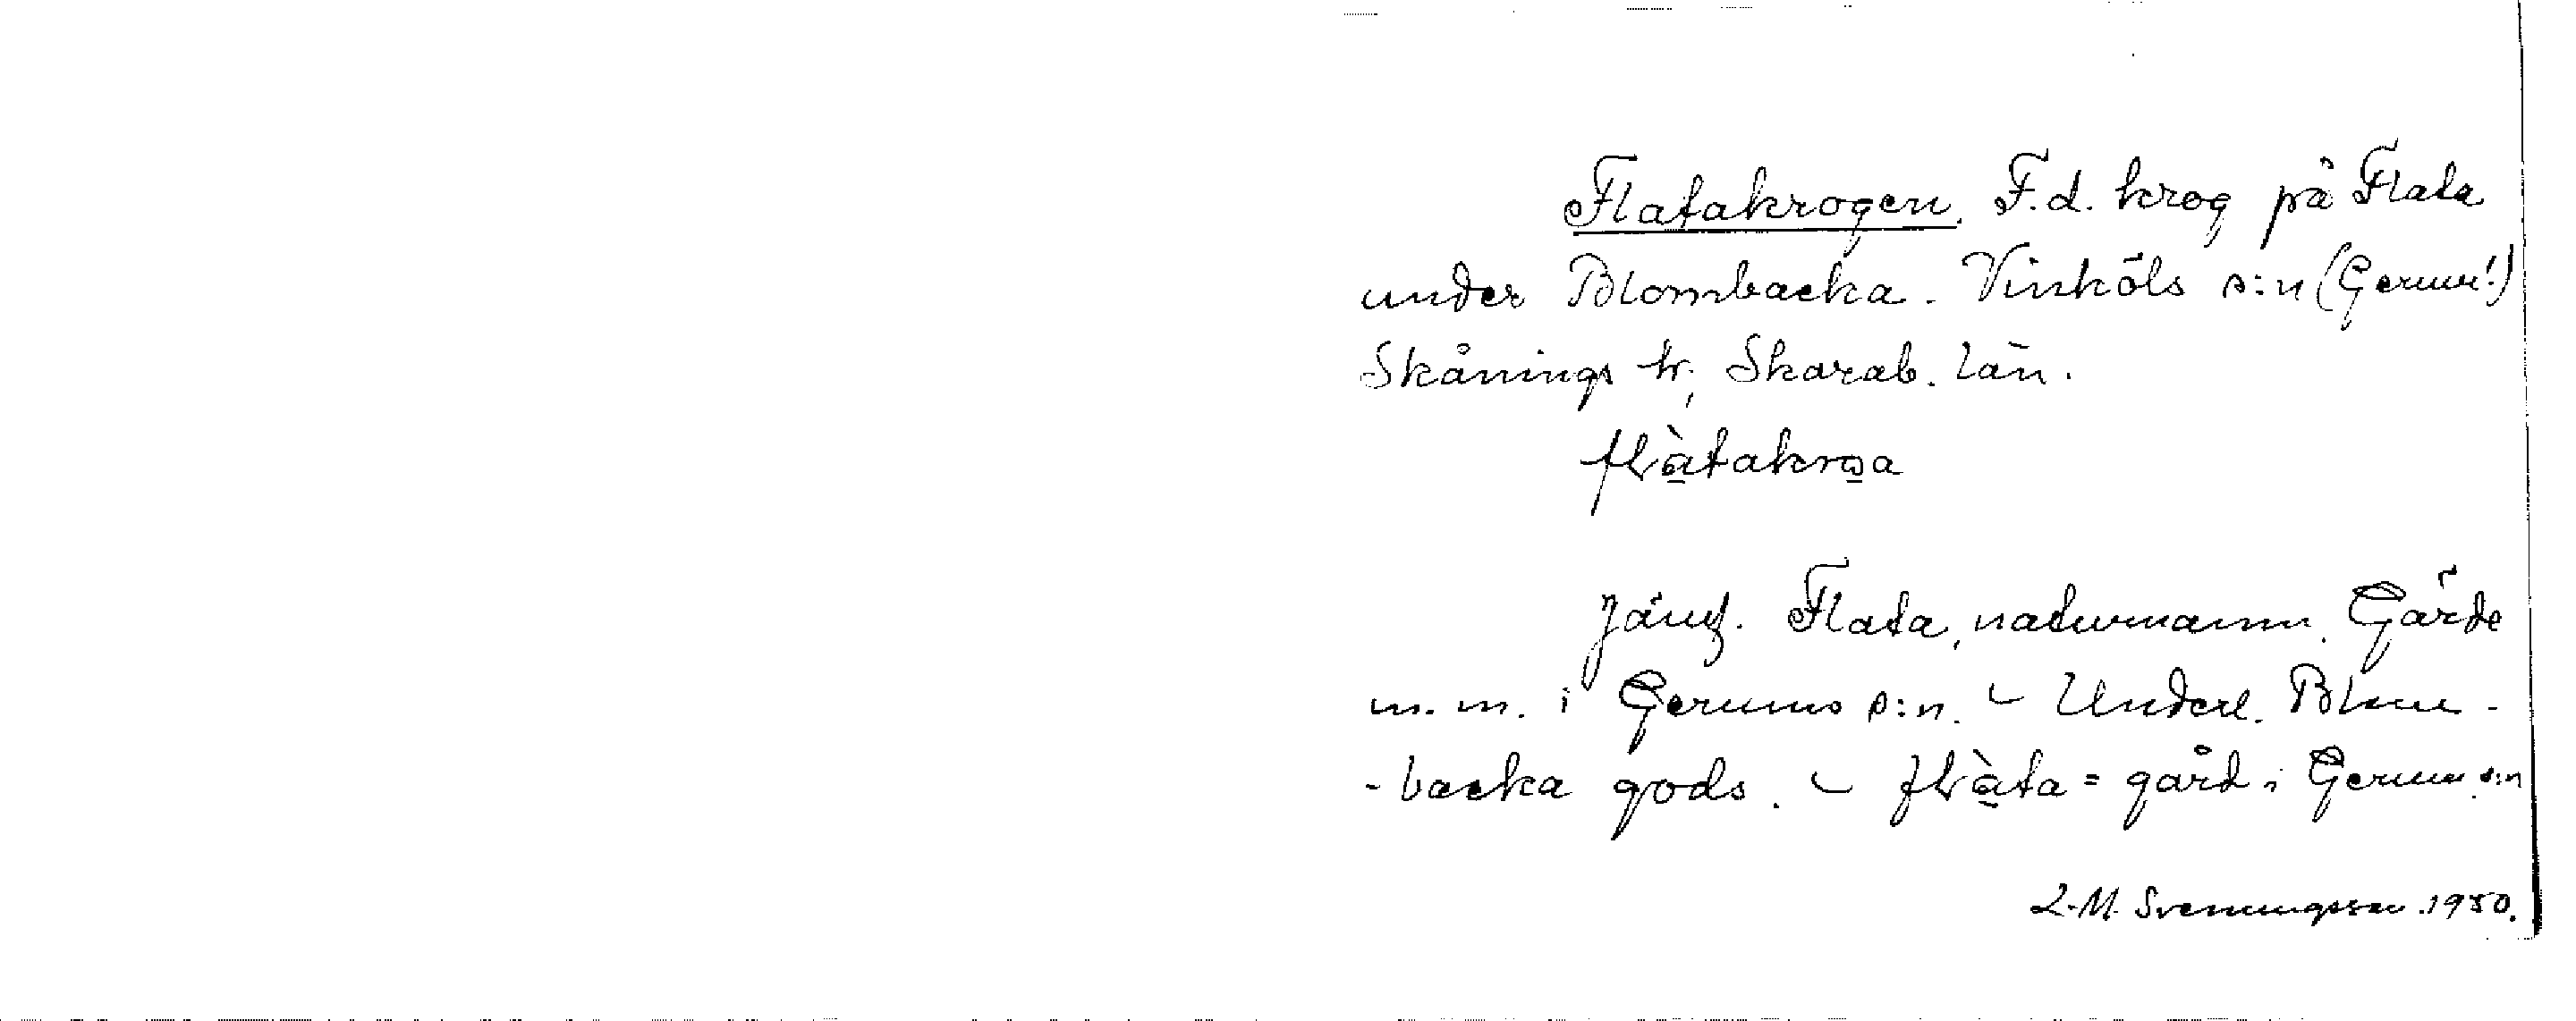 Flatakrogen. F.d. krog på Flata
under Blombacka. Vinköls s:n (Gerum!)
Skånings hr, Skarab. län.
flàtakroa
Jämf. Flata, naturnamn. Gärde
m.m. i Gerums s:n. - Underl. Blom-
-backa gods. - flàta = gård i Gerum s:n
L-M. Svenungsson. 1950.